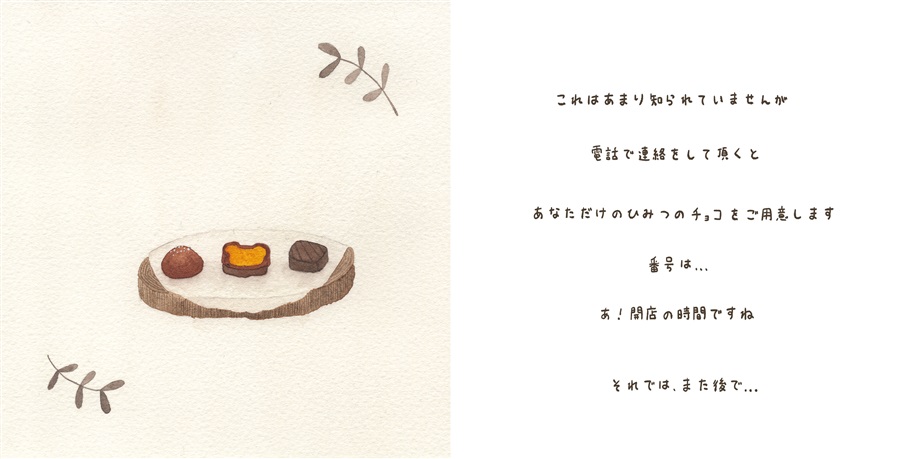 これはあまり知られていませんが
電話で連絡をして頂くと
あなただけのひみつのチョコをご用意します
番号は...
あ！開店の時間ですね
それでは、また後で...